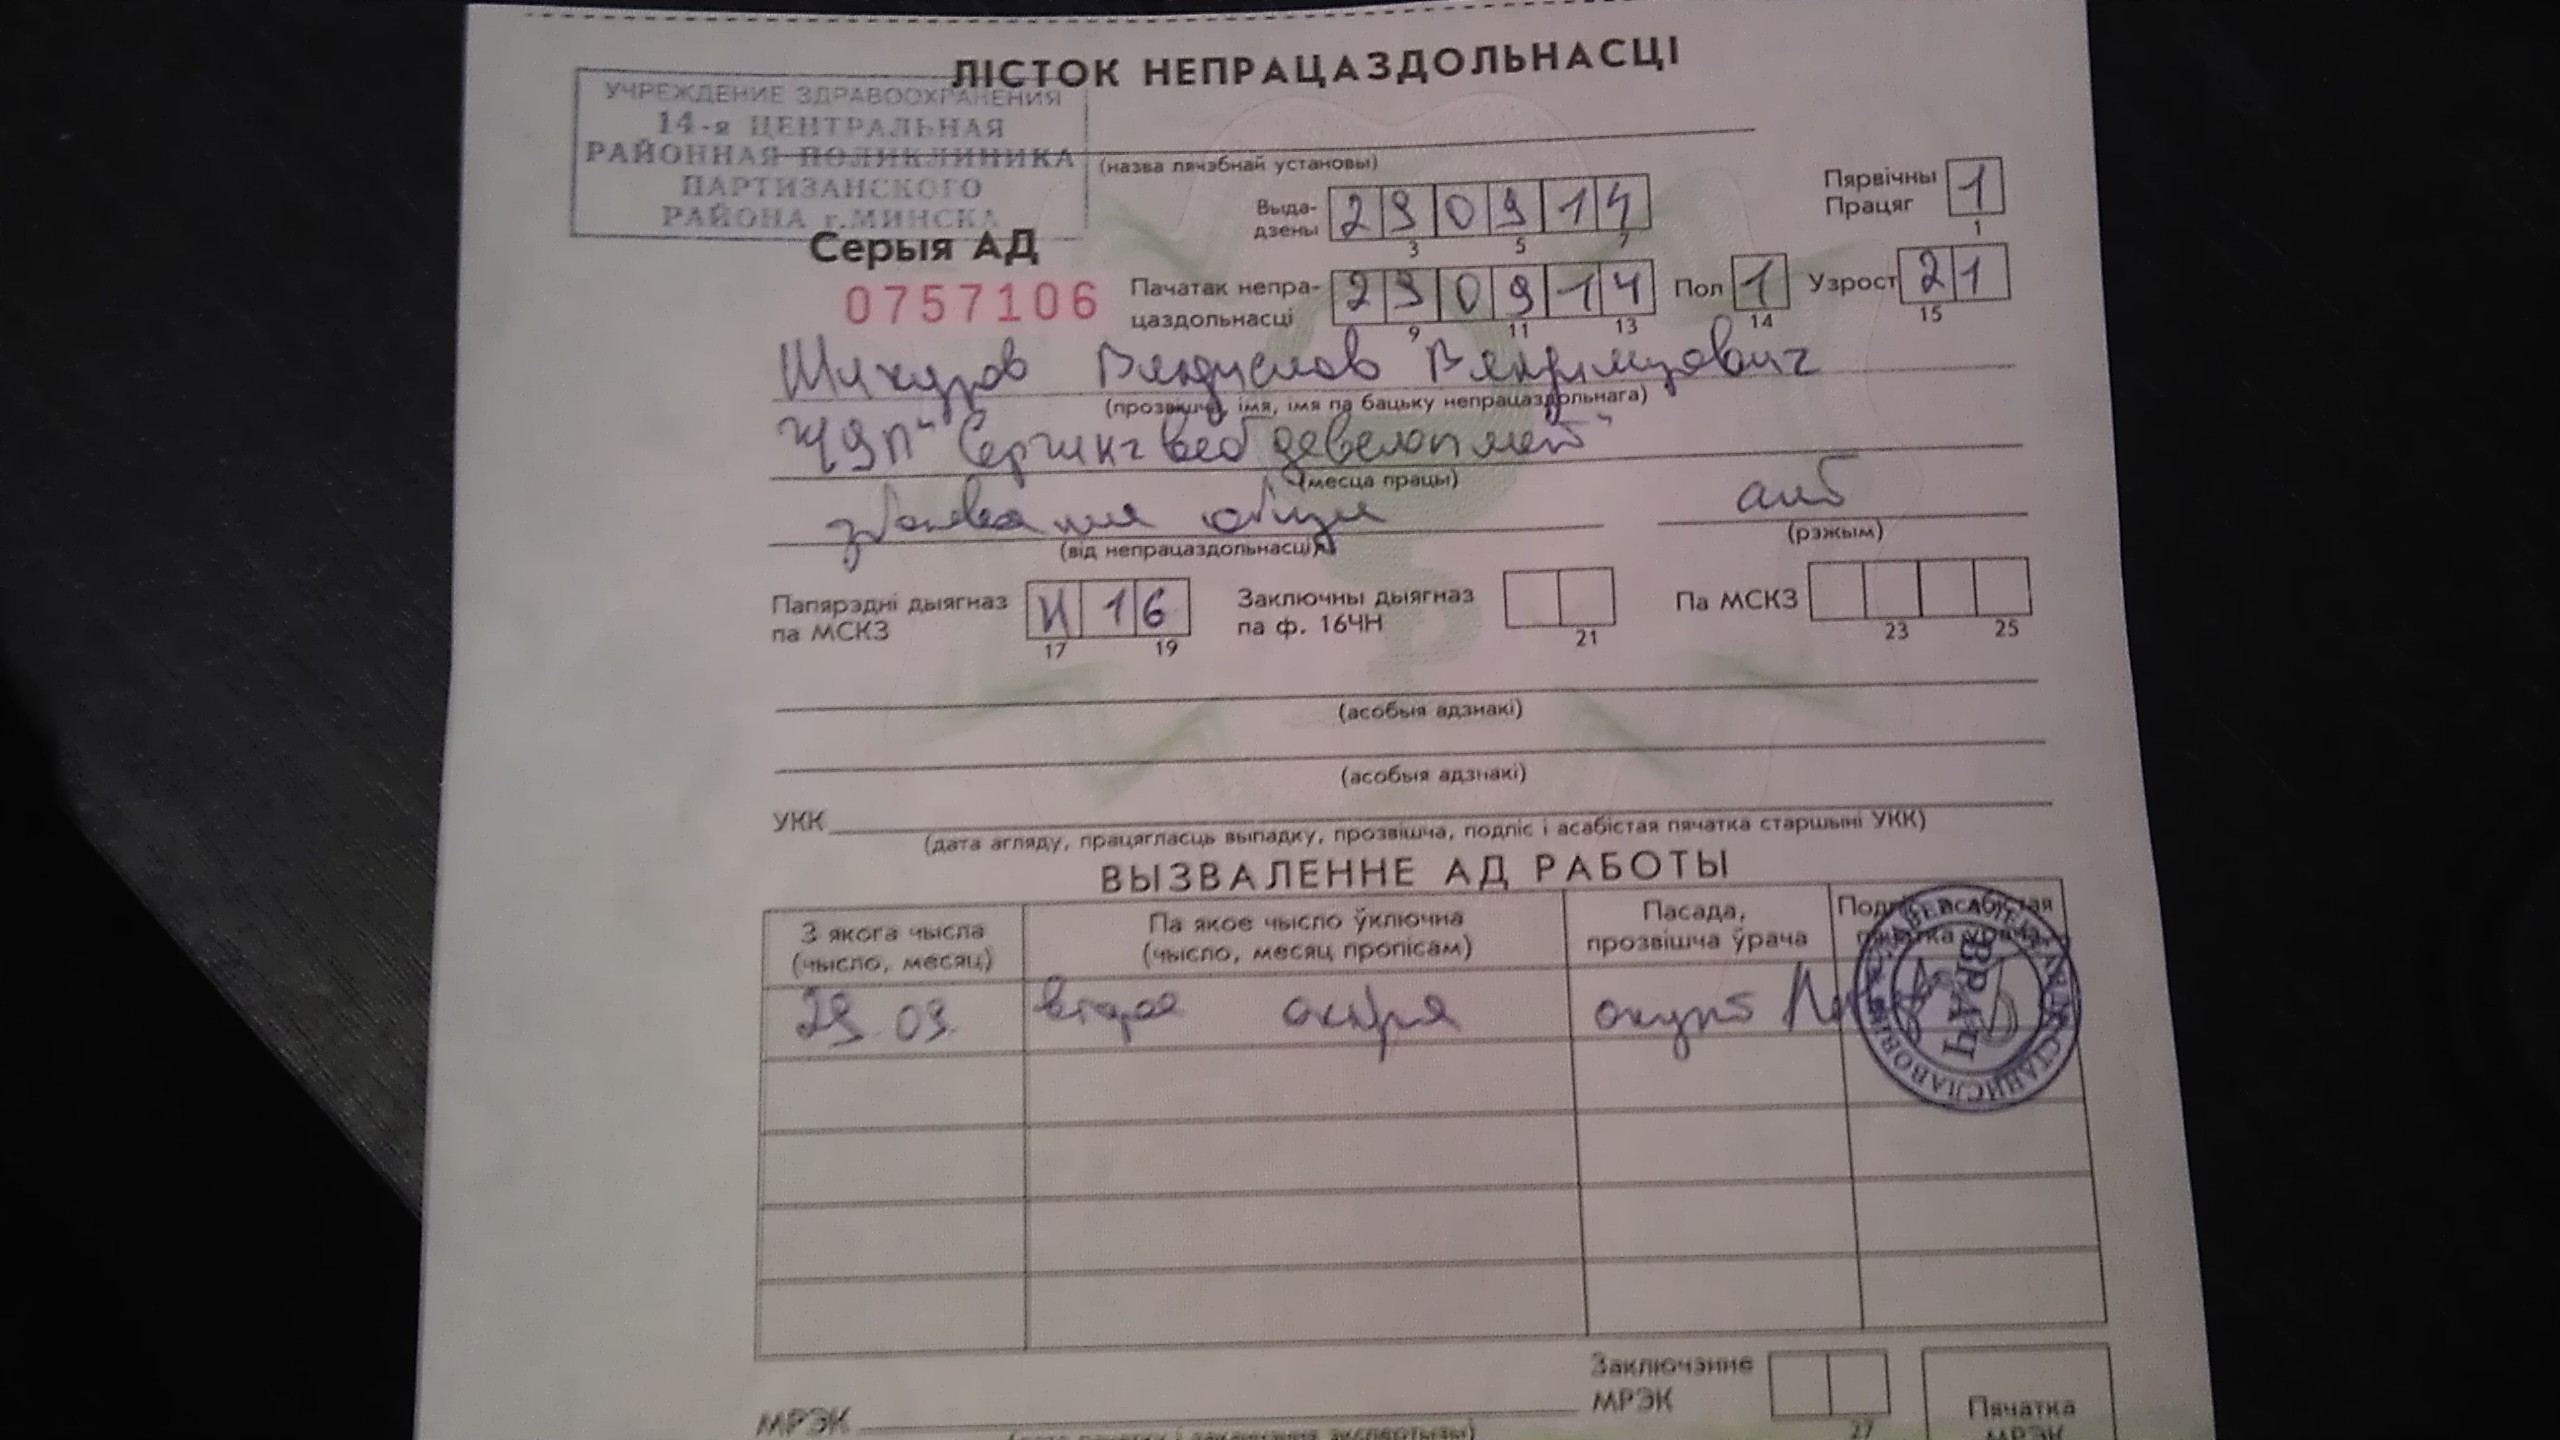 ЛІСТОК НЕПРАЦАЗДОЛЬНАСЦІ
УЧРЕЖДЕНИЕ ЗДРАВООХРАНЕНИЯ
14-я ЦЕНТРАЛЬНАЯ
РАЙОННАЯ ПОЛИКЛИНИКА
ПАРТИЗАНСКОГО
РАЙОНА г.МИНСКА
(назва лячэбнай установы)
Выда-
дзены 290914
3 5 7
Пярвічны
Працяг 1
1
Серыя АД
0757106
Пачатак непра-
цаздольнасці 290914
9 11 13
Пол 1
14
Узрост 21
15
(прозвішча, імя, імя па бацьку непрацаздольнага)
(месца працы)
амб
(від непрацаздольнасці) (рэжым)
Папярэдні дыягназ
па МСКЗ Н 16
17 19
Заключны дыягназ
па ф. 16ЧН
21
Па МСКЗ
23 25
(асобыя адзнакі)
(асобыя адзнакі)
УКК
(дата агляду, працягласць выпадку, прозвішча, подпіс і асабістая пячатка старшыні УКК)
ВЫЗВАЛЕННЕ АД РАБОТЫ
З якога чысла
(чысло, месяц)
Па якое чысло ўключна
(чысло, месяц пропісам)
Пасада,
прозвішча ўрача
Подпіс, асабістая
пячатка ўрача
29.09. второе октября
ВРАЧ
МРЭК
Заключэнне
МРЭК
27
Пячатка
МРЭК